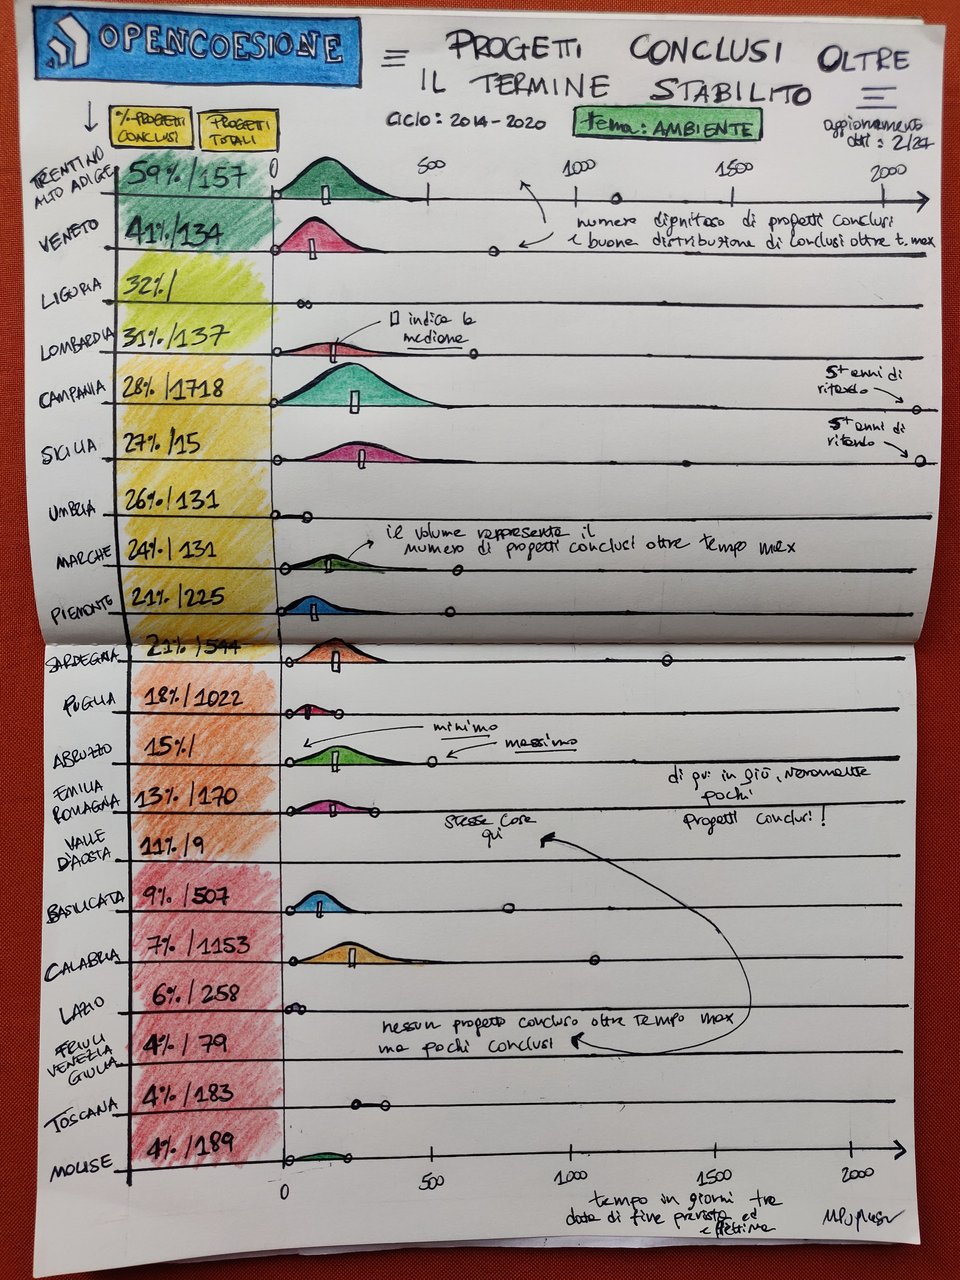 OPENCOESIONE
= PROGETTI CONCLUSI OLTRE
IL TERMINE STABILITO =
% PROGETTI CONCLUSI
PROGETTI TOTALI
Ciclo: 2014-2020
tema: AMBIENTE
aggiornamento
dati: 2/24
0 500 1000 1500 2000
TRENTINO ALTO ADIGE 59% / 157
numero dignitoso di progetti conclusi
e buone distribuzione di conclusi oltre t. max
VENETO 41% / 134
LIGURIA 32% /
indica la
mediana
LOMBARDIA 31% / 137
5+ anni di
ritardo
CAMPANIA 28% / 1718
5+ anni di
ritardo
SICILIA 27% / 15
UMBRIA 26% / 131
il volume rappresenta il
numero di progetti conclusi oltre tempo max
MARCHE 24% / 131
PIEMONTE 21% / 225
SARDEGNA 21% / 544
PUGLIA 18% / 1022
minimo
massimo
ABRUZZO 15% /
di qui in giù, veramente
pochi
progetti conclusi!
EMILIA ROMAGNA 13% / 170
stessa cosa
qui
VALLE D'AOSTA 11% / 9
BASILICATA 9% / 507
CALABRIA 7% / 1153
LAZIO 6% / 258
nessun progetto concluso oltre tempo max
ma pochi conclusi
FRIULI VENEZIA GIULIA 4% / 79
TOSCANA 4% / 183
MOLISE 4% / 189
0 500 1000 1500 2000
tempo in giorni tra
data di fine prevista ed
effettiva